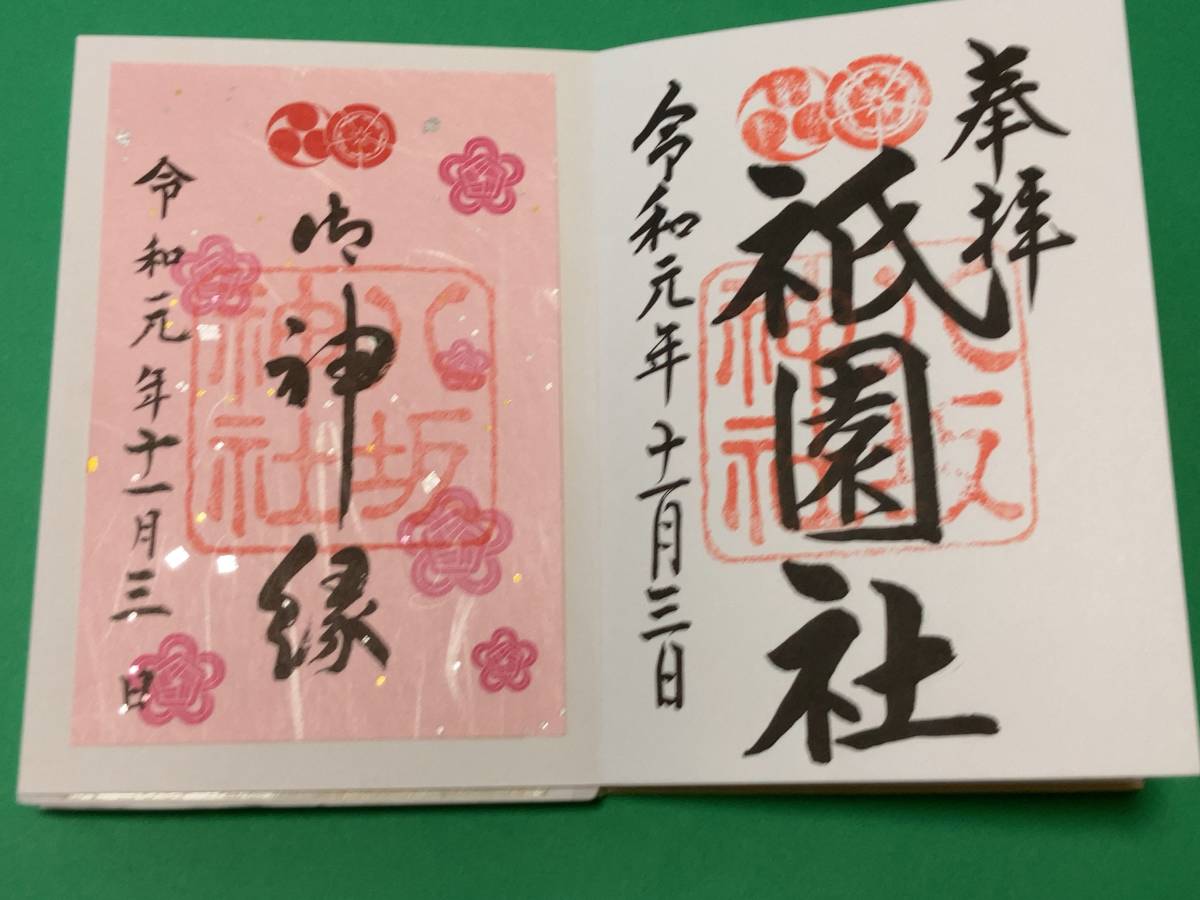 奉拝
祇園社
八坂
神社
令和元年十一月三日
御神縁
八坂
神社
令和元年十一月三日